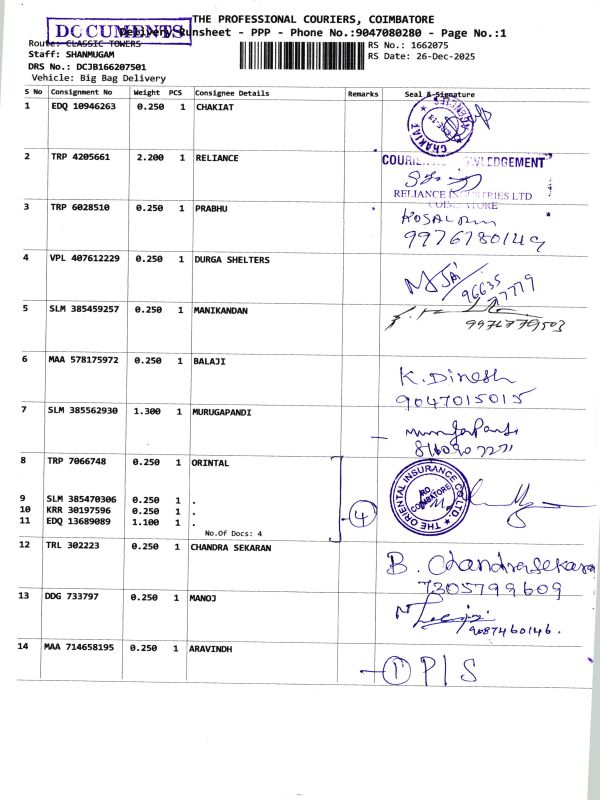 THE PROFESSIONAL COURIERS, COIMBATORE
DOCUMENTS
Delivery Runsheet - PPP - Phone No.:9047080280 - Page No.:1
Route: CLASSIC TOWERS
RS No.: 1662075
Staff: SHANMUGAM
RS Date: 26-Dec-2025
DRS No.: DCJB166207501
Vehicle: Big Bag Delivery
S No Consignment No Weight PCS Consignee Details Remarks Seal & Signature
1 EDQ 10946263 0.250 1 CHAKIAT
CHAKIAT
2 TRP 4205661 2.200 1 RELIANCE
COURIER ACKNOWLEDGEMENT
RELIANCE INDUSTRIES LTD
COIMBATORE
3 TRP 6028510 0.250 1 PRABHU
9976780149
4 VPL 407612229 0.250 1 DURGA SHELTERS
96635
77779
5 SLM 385459257 0.250 1 MANIKANDAN
9976779503
6 MAA 578175972 0.250 1 BALAJI
K. Dinesh
9047015015
7 SLM 385562930 1.300 1 MURUGAPANDI
8 TRP 7066748 0.250 1 ORINTAL
THE ORIENTAL INSURANCE CO LTD
COIMBATORE
9 SLM 385470306 0.250 1 .
10 KRR 30197596 0.250 1 .
4
11 EDQ 13689089 1.100 1 .
No.Of Docs: 4
12 TRL 302223 0.250 1 CHANDRA SEKARAN
B. Chandrasekaran
7305799609
13 DDG 733797 0.250 1 MANOJ
9087460146.
14 MAA 714658195 0.250 1 ARAVINDH
1 P/S